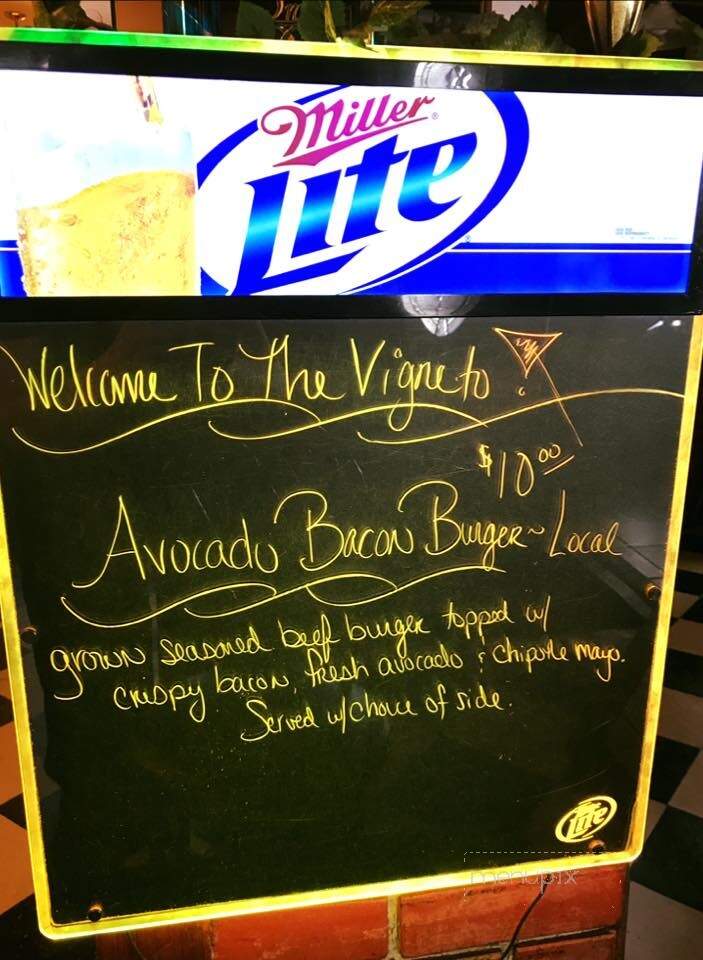 Miller
Lite
Welcome To The Vigneto
$10.00
Avocado Bacon Burger ~ Local
grown seasoned beef burger topped w/
crispy bacon, fresh avocado & chipotle mayo.
Served w/choice of side.
Lite
menupix